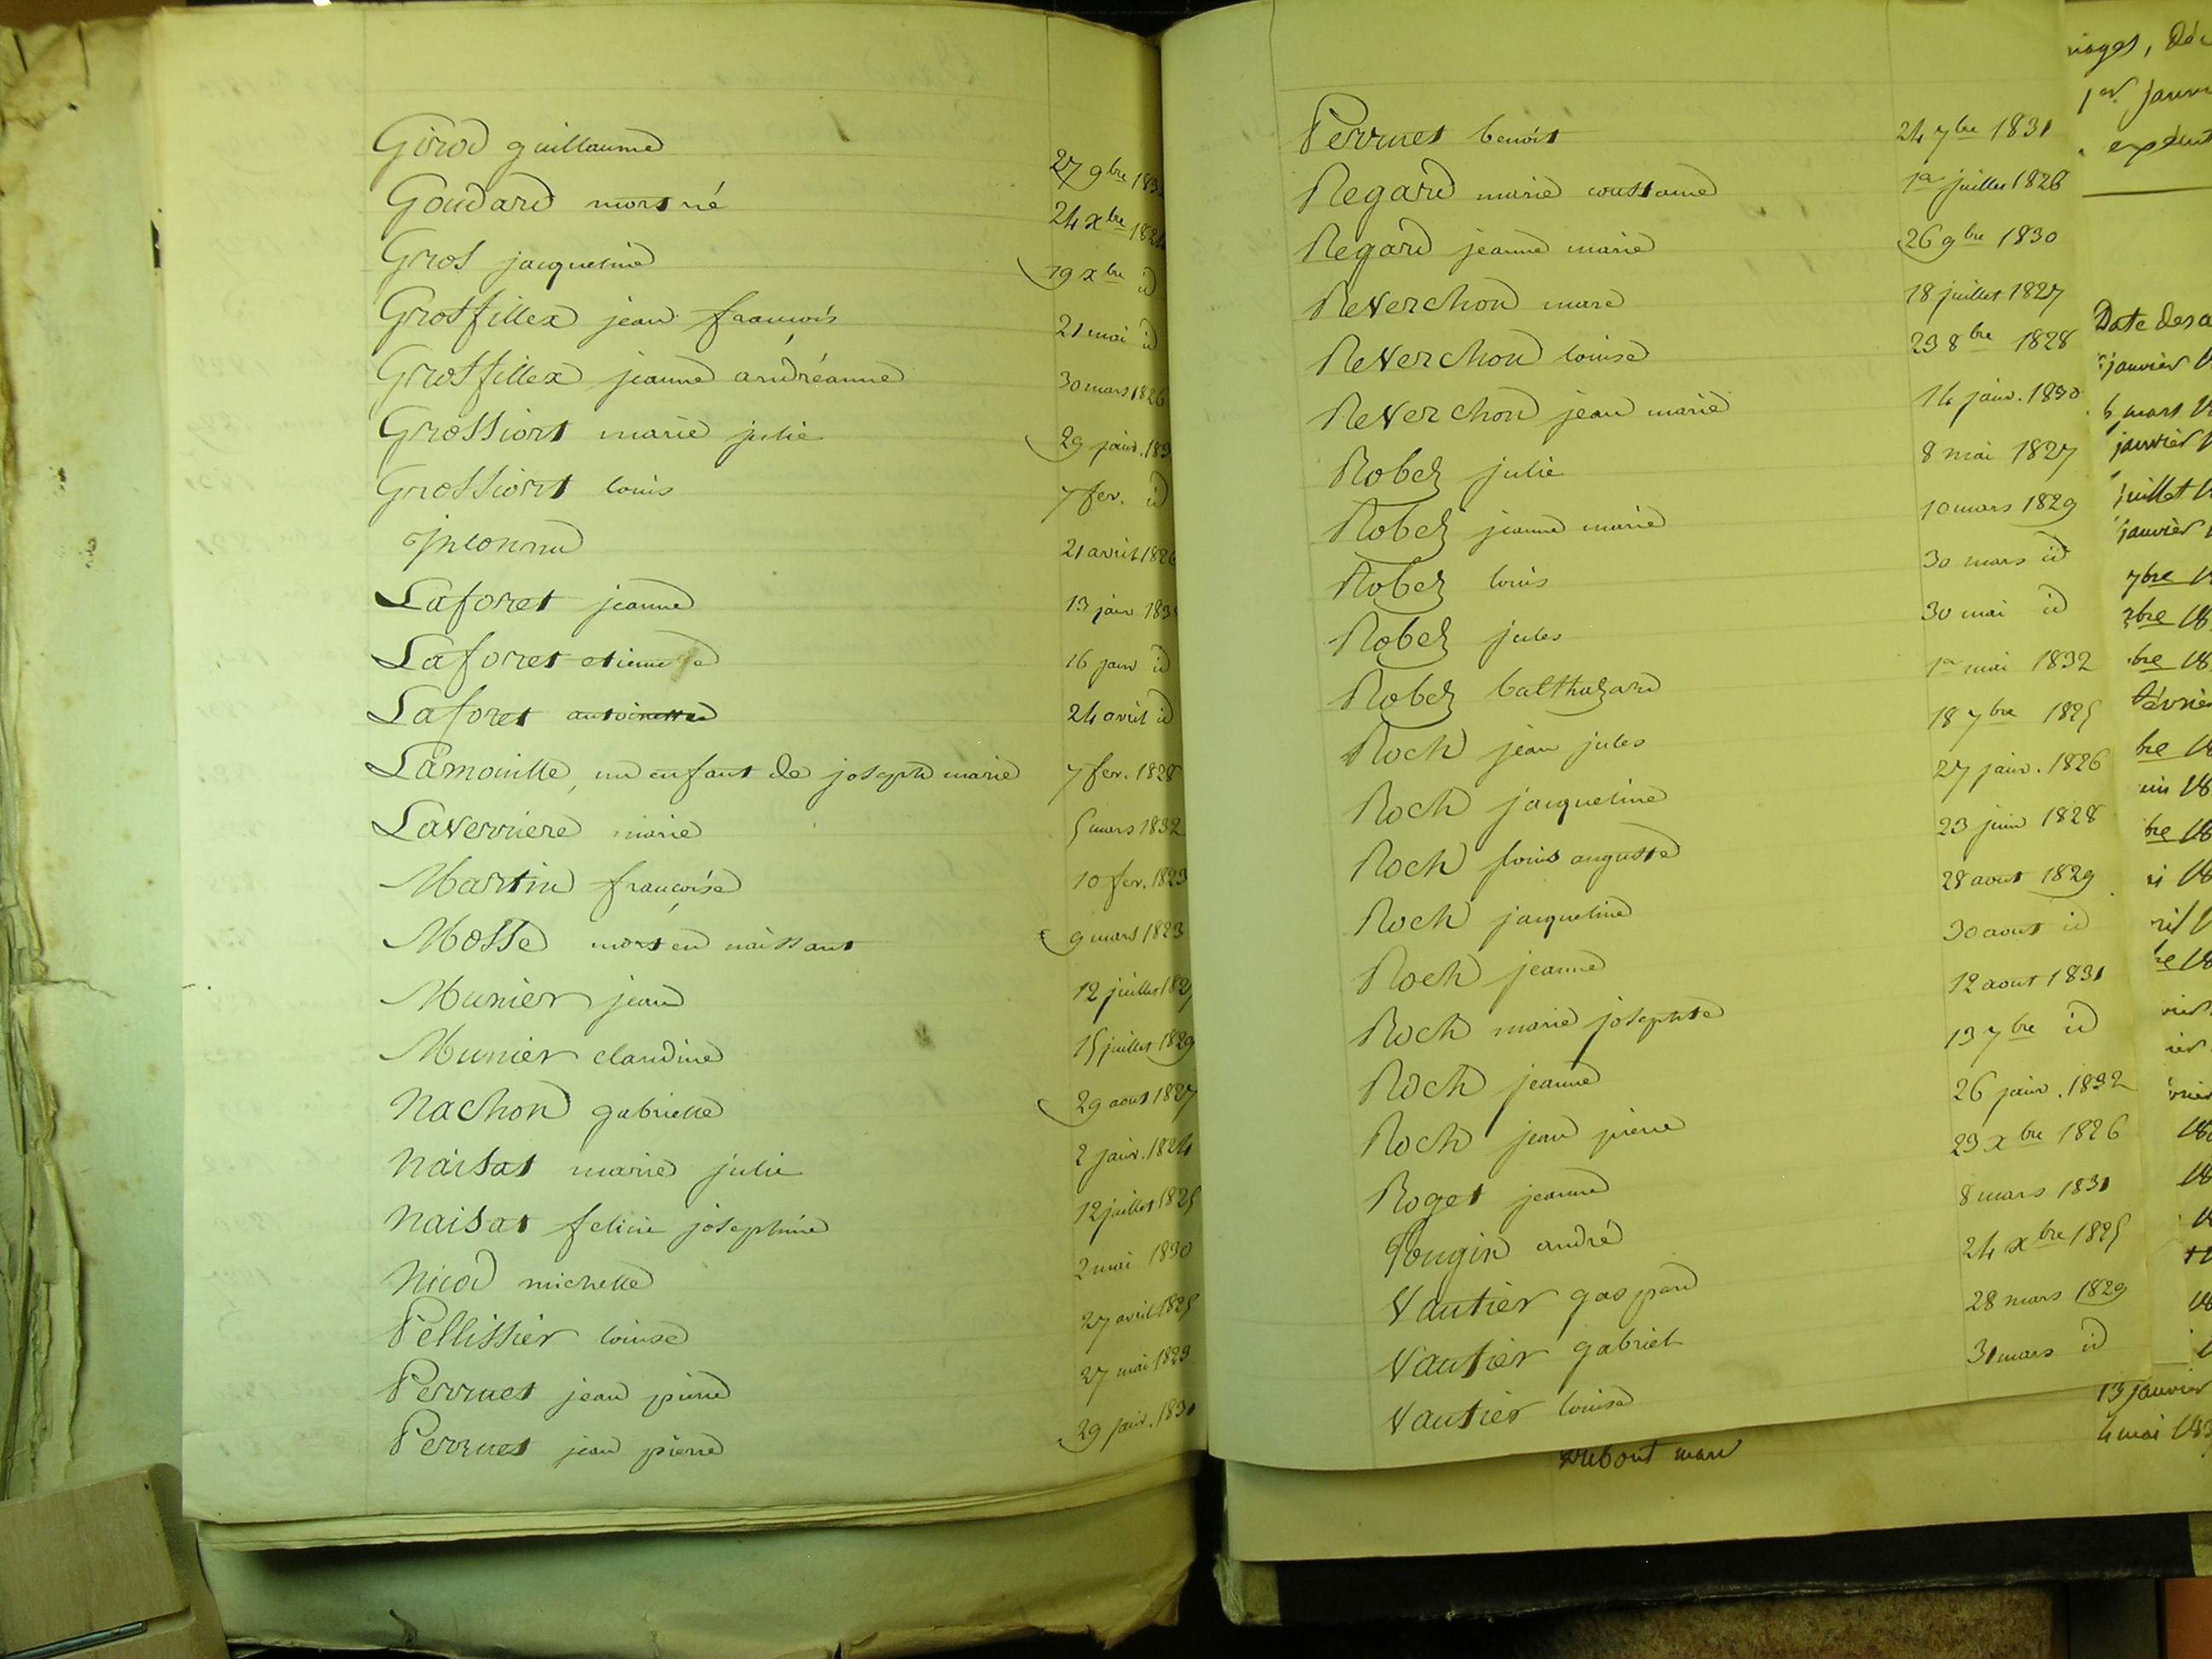 Girod guillaume 27 9bre 183
Goudard mort né 24 xbre 1824
Gros jacqueline 19 xbre id
Grosfillex jean francois 21 mai id
Grosfillex jeanne andréanne 30 mars 1826
Grossiort marie julie 29 janv. 183
Grossiort louis 7 fev. id
Inconnu 21 avril 1826
Laforet jeanne 13 janv 183
Laforet etiennette 16 janv id
Laforet antoinette 24 avril id
Lamouille, un enfant de joseph marie 7 fev. 1828
Laverriere marie 5 mars 1832
Martin françoise 10 fev. 1823
Mosse mort en naissant 9 mars 1823
Munier jean 12 juillet 182
Munier claudine 15 juillet 1829
Nachon gabrielle 29 aout 1827
Naisat marie julie 2 janv. 1824
Naisat felicie josephine 12 juillet 1825
Nicod michelle 2 mai 1830
Pellissier louise 27 avril 1825
Perrnet jean pierre 27 mai 1829
Perrnet jean pierre 29 janv. 1831
Perrnet benoit 24 7bre 1831
Regard marie constance 1er juillet 1826
Regard jeanne marie 26 9bre 1830
Reverchon marc 18 juillet 1827
Reverchon louise 23 8bre 1828
Reverchon jean marie 14 janv. 1830
Robez julie 8 mai 1827
Robez jeanne marie 10 mars 1829
Robez louis 30 mars id
Robez jules 30 mai id
Robez balthazard 1er mai 1832
Roch jean jules 18 7bre 1825
Roch jacqueline 27 janv. 1826
Roch louis auguste 23 juin 1828
Roch jacqueline 28 aout 1829
Roch jeanne 30 aout id
Roch marie josephte 12 aout 1831
Roch jeanne 13 7bre id
Roch jean pierre 26 janv. 1832
Roget jeanne 23 xbre 1826
Tougin andré 8 mars 1831
Vautier gaspard 24 xbre 1825
Vautier gabriel 28 mars 1829
Vautier louise 31 mars id
Dubout marc
1er Janvi
Date des a
janvier
mars
janvier
juillet
janvier
7bre
13 janvier
4 mai 183